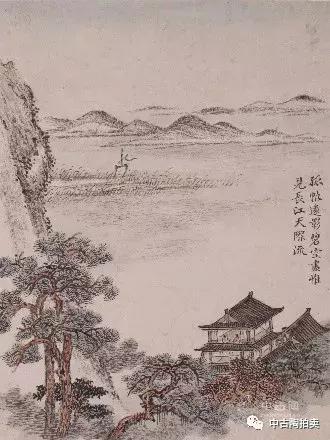 孤帆遠影碧空盡惟
見長江天際流
中古陶拍卖